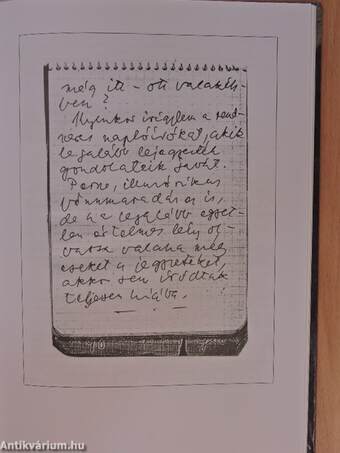 még itt-ott valakik-
ben?
Ilyenkor irigylem a rend-
szeres naplóírókat, akik
legalább lejegyezték
gondolataik javát.
Persze, illuzórikus
fennmaradás ez is,
de ha legalább egyet-
len értelmes lény ol-
vassa valaha még
ezeket a jegyzeteket,
akkor sem íródtak
teljesen hiába.
Antikvárium.hu